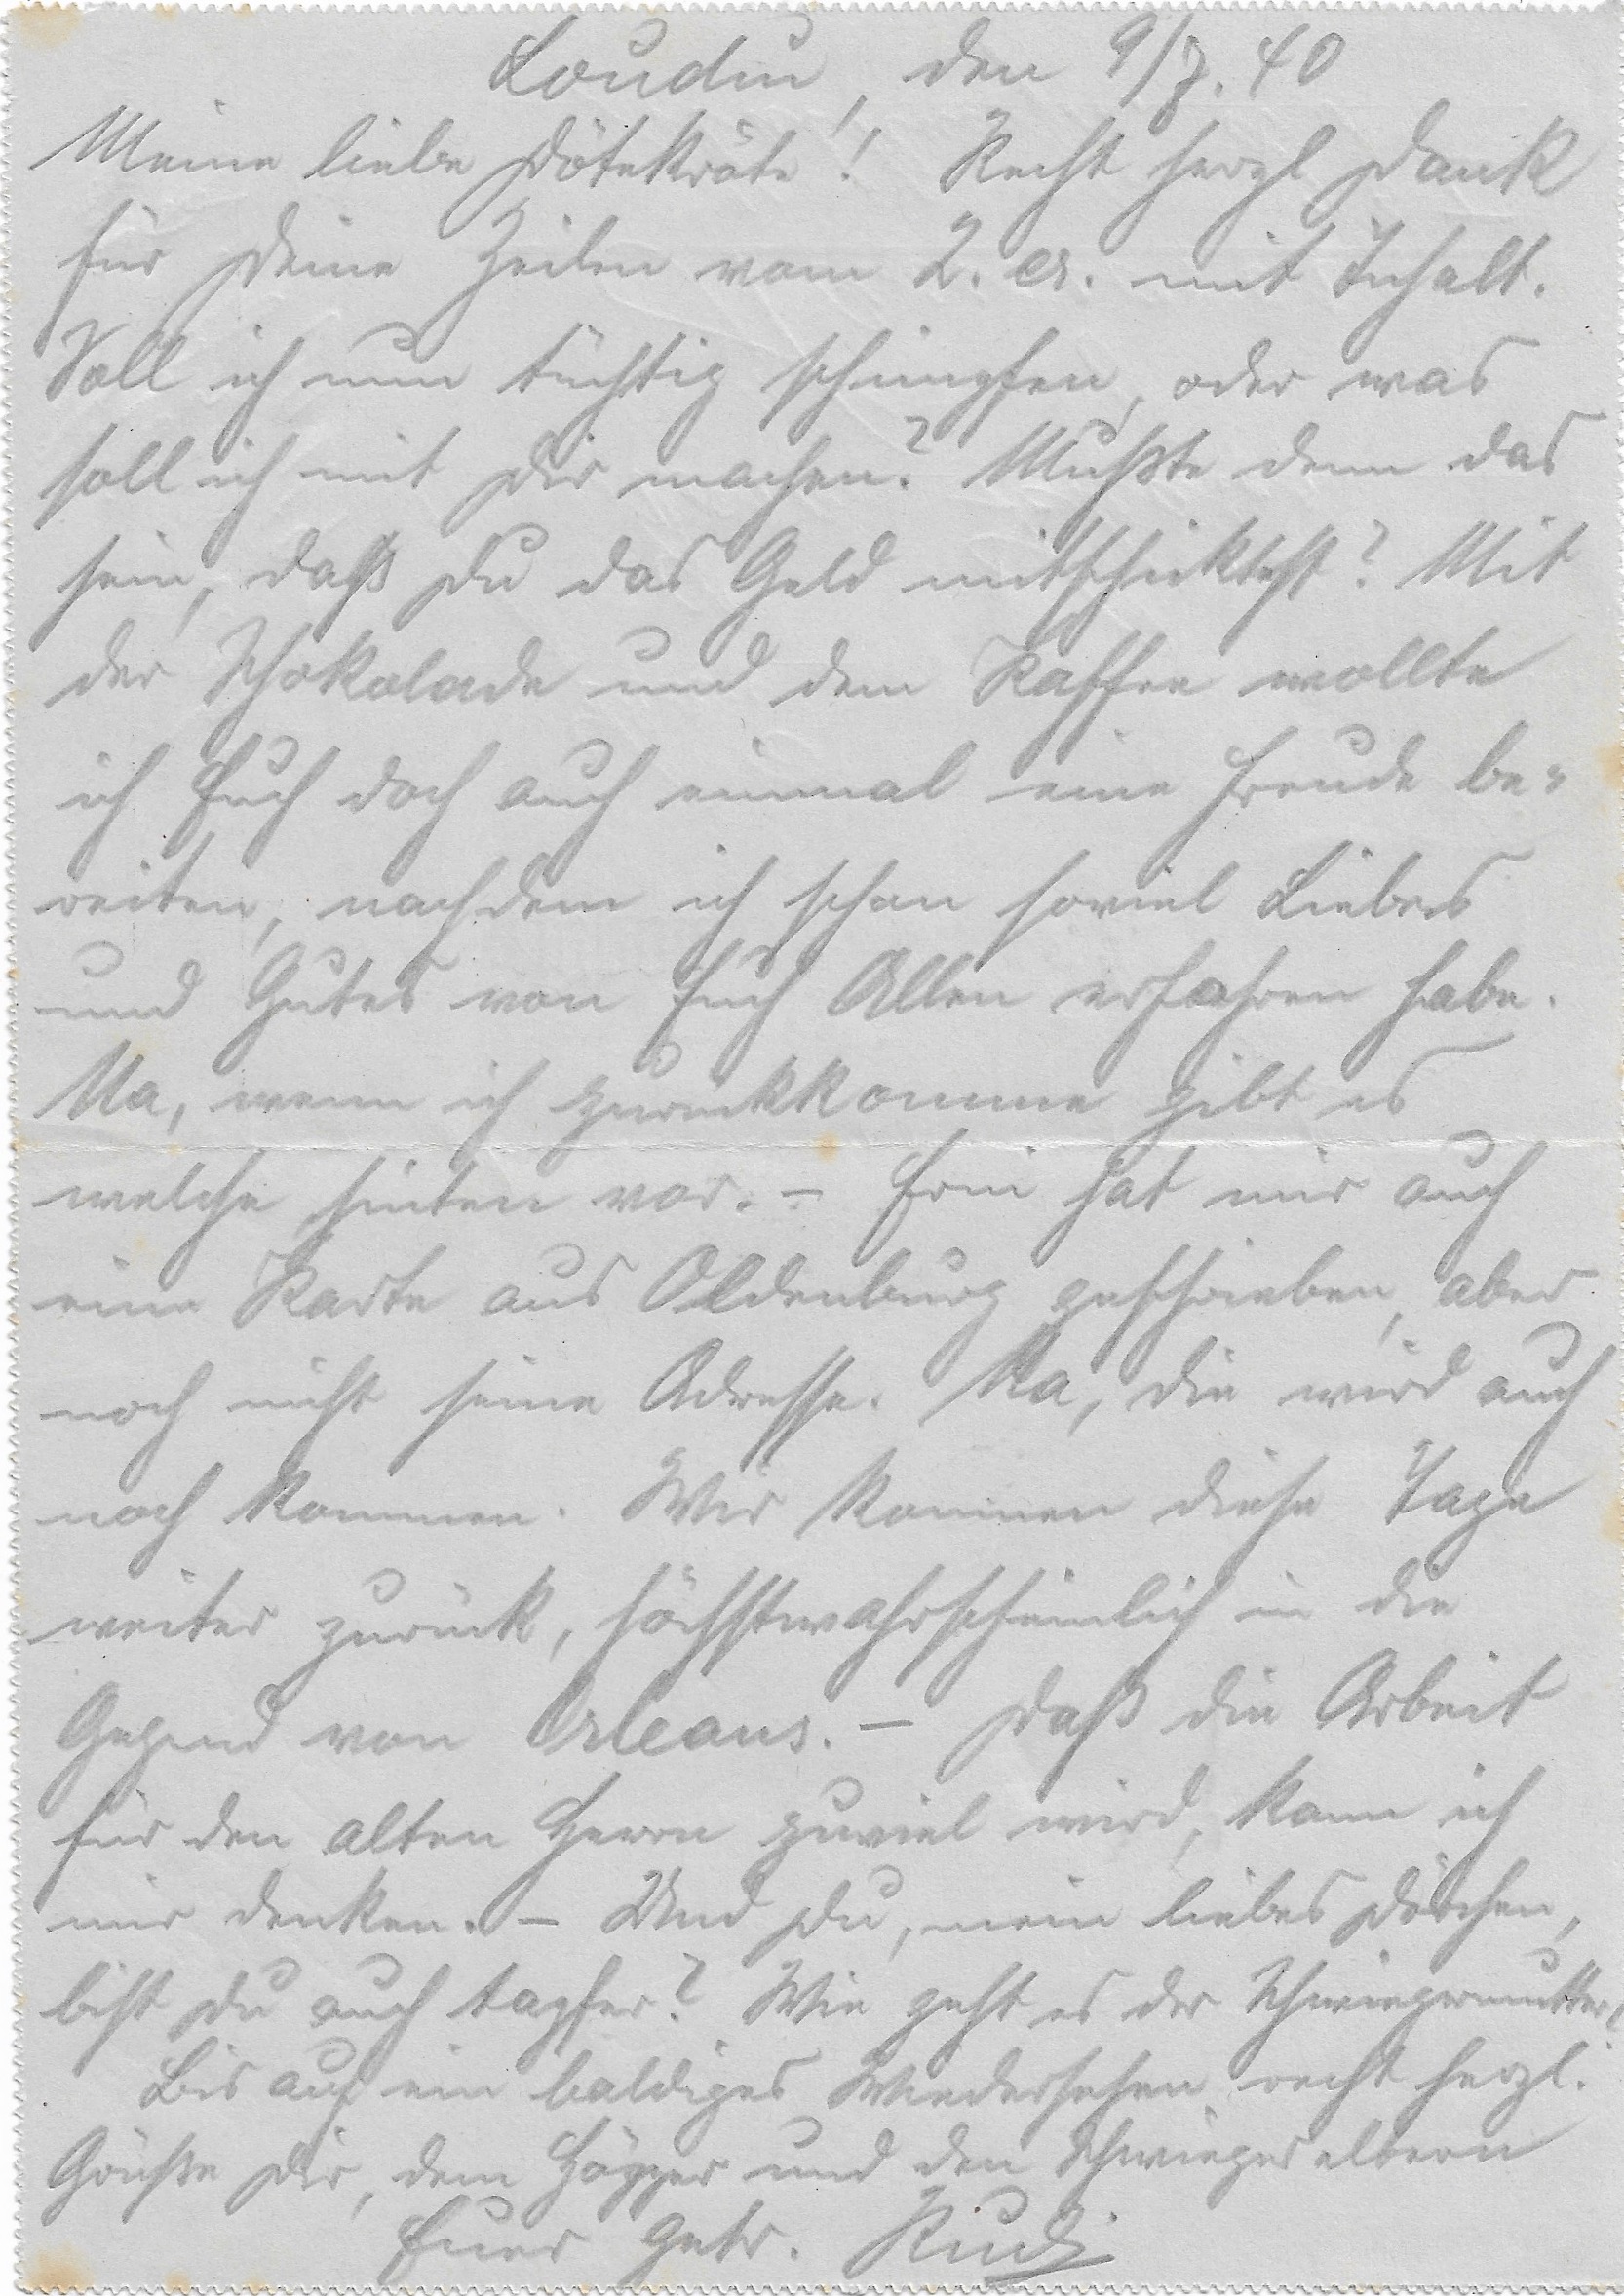 Loudun, den 9/7. 40
Meine liebe Dötekröte! Recht herzl Dank
für Deine Zeilen vom 2. cr. mit Inhalt.
Soll ich nun tüchtig schimpfen, oder was
soll ich mit Dir machen? Mußte denn das
sein, daß Du das Geld mitschicktest? Mit
der Schokolade und dem Kaffee wollte
ich Euch doch auch einmal eine Freude be-
reiten, nachdem ich schon soviel Liebes
und Gutes von Euch Allen erfahren habe.
Na, wenn ich zurückkomme gibt es
welche hinten vor. - Erni hat mir auch
eine Karte aus Oldenburg geschrieben, aber
noch nicht seine Adresse. Na, die wird auch
noch kommen. Wir kommen diese Tage
weiter zurück, höchstwahrscheinlich in die
Gegend von Orleans. - Daß die Arbeit
für den alten Herrn zuviel wird, kann ich
mir denken. - Und Du, mein liebes Dörchen,
bist Du auch tapfer? Wie geht es der Schwiegermutter?
Bis auf ein baldiges Wiedersehen recht herzl.
Grüße Dir, dem und den Schwiegereltern
Euer getr. Rudi